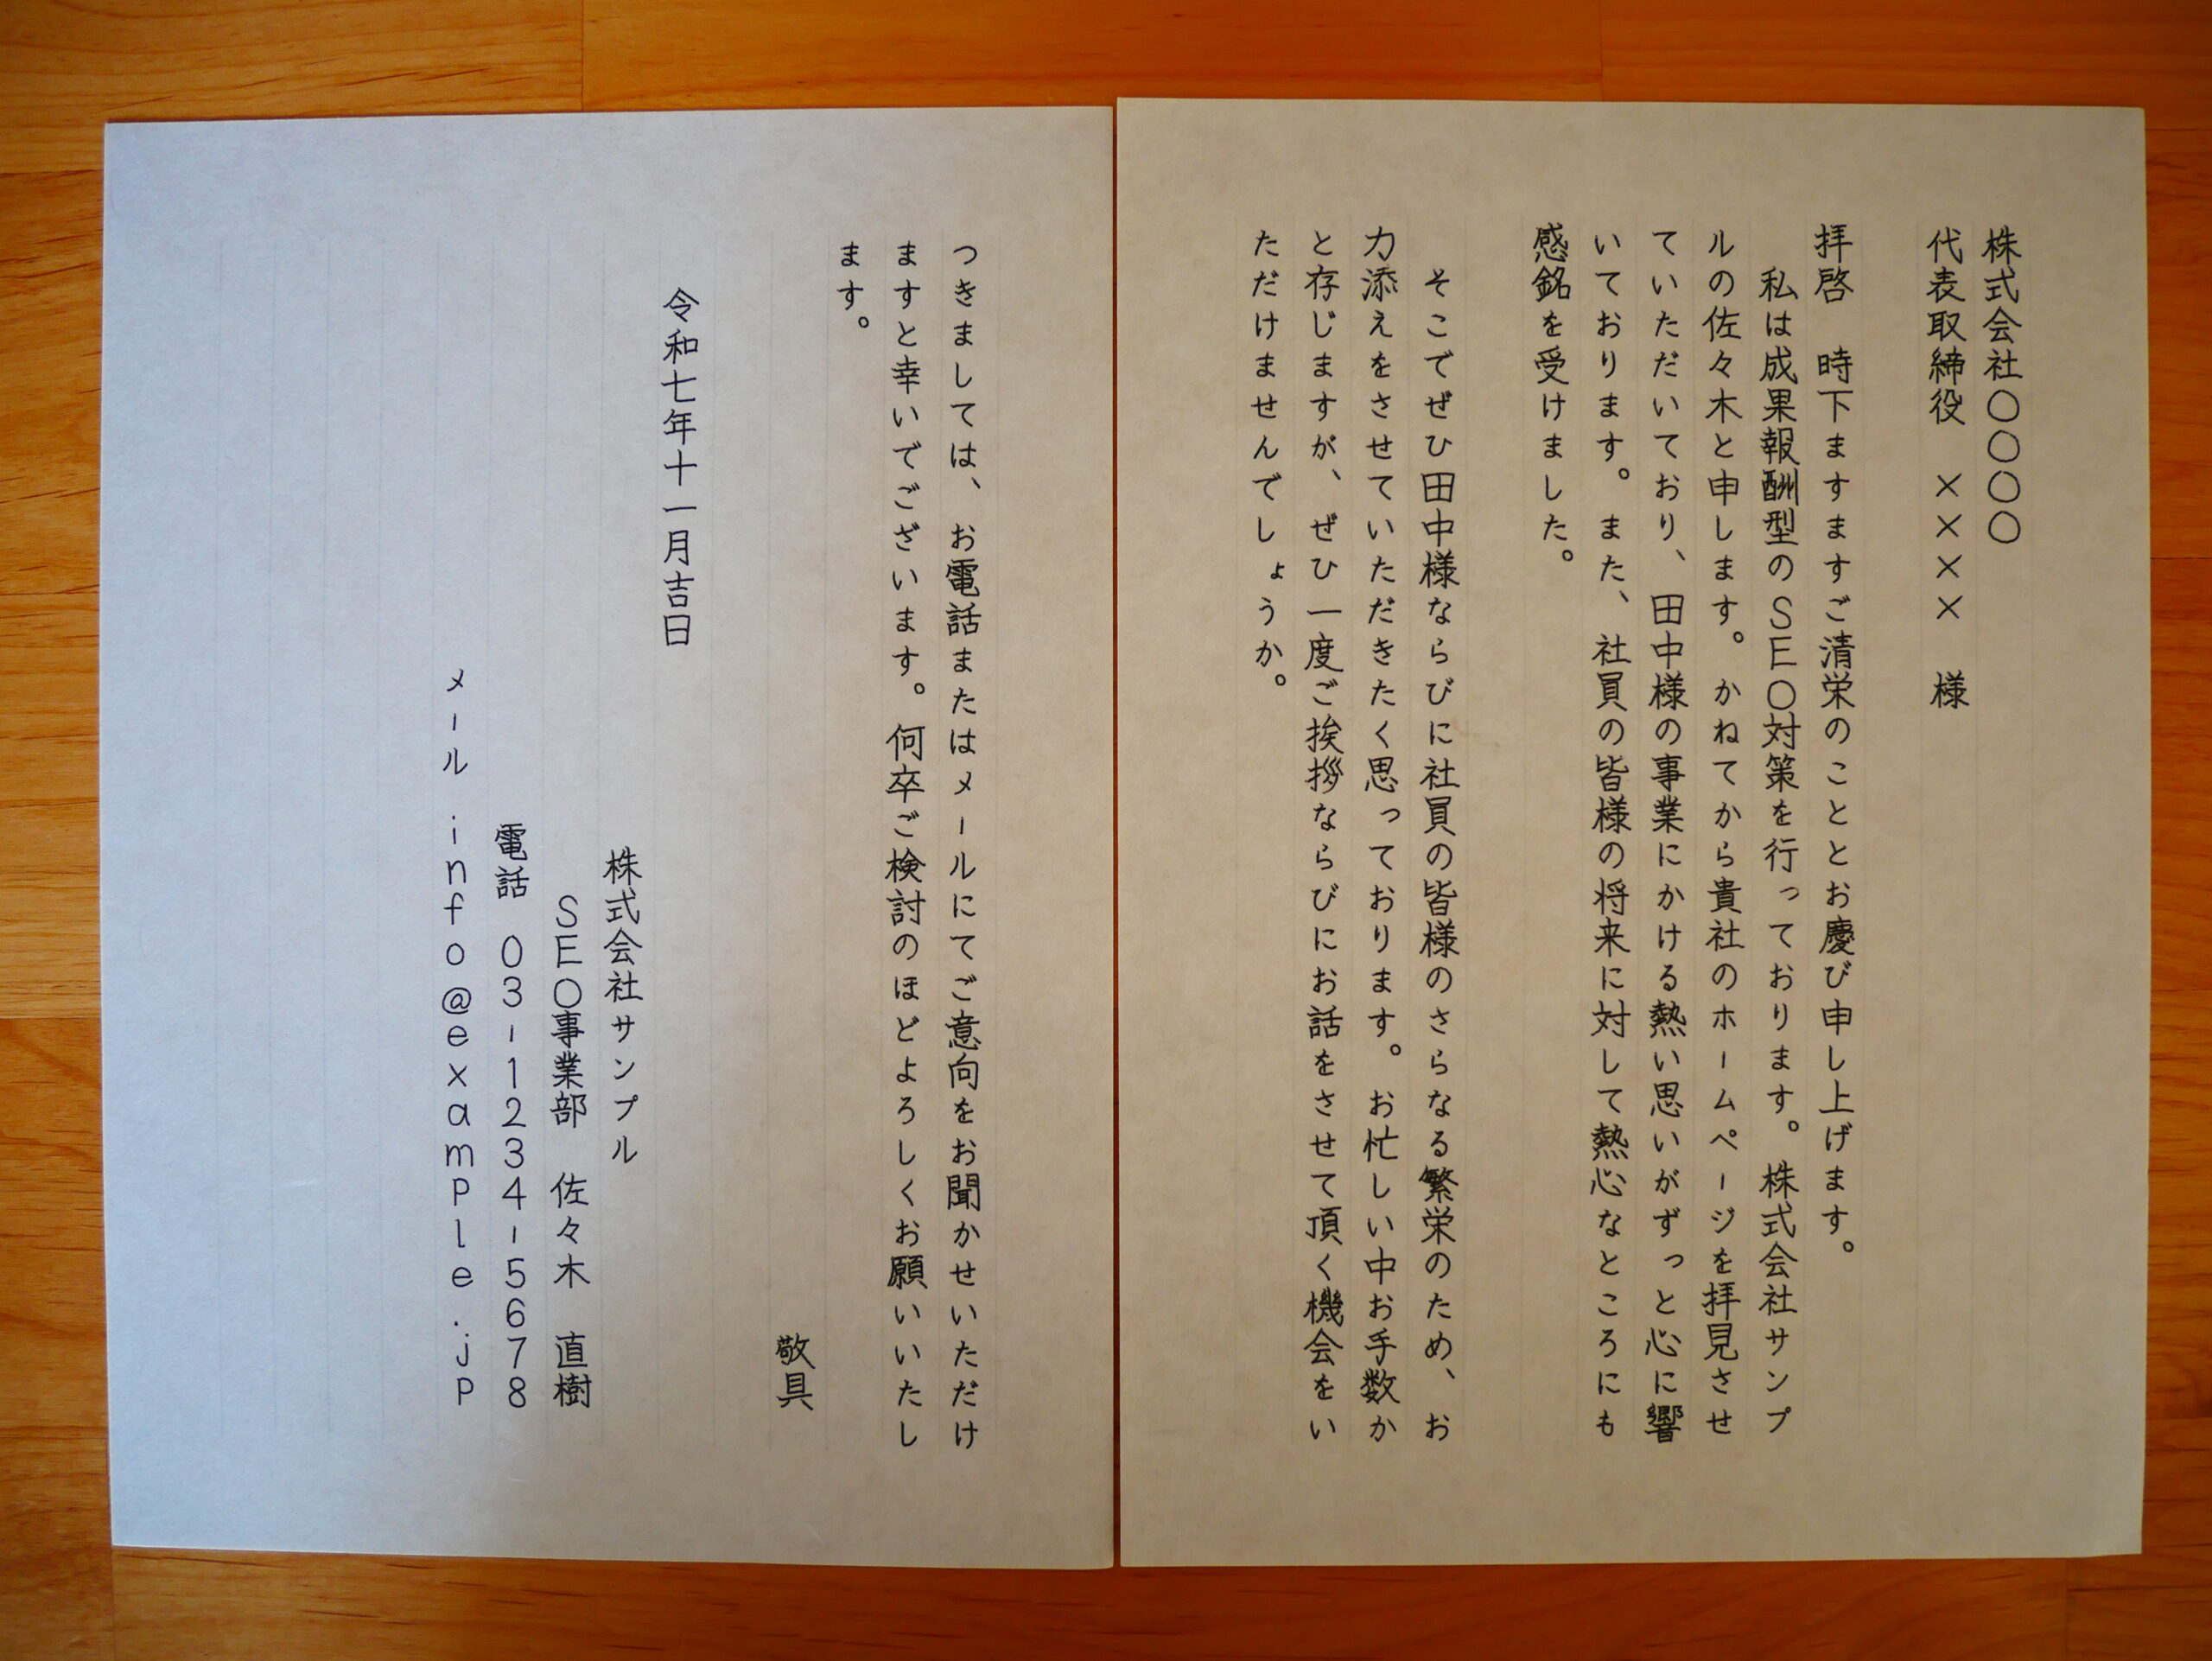 株式会社〇〇〇〇
代表取締役　××××　様
拝啓　時下ますますご清栄のこととお慶び申し上げます。
　私は成果報酬型のSEO対策を行っております。株式会社サンプ
ルの佐々木と申します。かねてから貴社のホームページを拝見させ
ていただいており、田中様の事業にかける熱い思いがずっと心に響
いております。また、社員の皆様の将来に対して熱心なところにも
感銘を受けました。
　そこでぜひ田中様ならびに社員の皆様のさらなる繁栄のため、お
力添えをさせていただきたく思っております。お忙しい中お手数か
と存じますが、ぜひ一度ご挨拶ならびにお話をさせて頂く機会をい
ただけませんでしょうか。
つきましては、お電話またはメールにてご意向をお聞かせいただけ
ますと幸いでございます。何卒ご検討のほどよろしくお願いいたし
ます。
敬具
令和七年十一月吉日
株式会社サンプル
SEO事業部　佐々木　直樹
電話　03-1234-5678
メール　info@example.jp